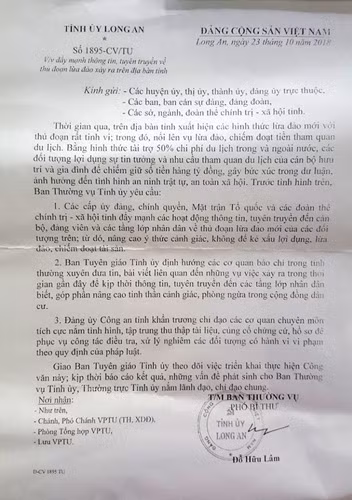 TỈNH ỦY LONG AN
*
Số 1895-CV/TU
V/v đẩy mạnh thông tin, tuyên truyền về
thủ đoạn lừa đảo xảy ra trên địa bàn tỉnh
ĐẢNG CỘNG SẢN VIỆT NAM
Long An, ngày 23 tháng 10 năm 2018
Kính gửi: - Các huyện ủy, thị ủy, thành ủy, đảng ủy trực thuộc,
- Các ban, ban cán sự đảng, đảng đoàn,
- Các sở, ngành, đoàn thể chính trị - xã hội tỉnh.
Thời gian qua, trên địa bàn tỉnh xuất hiện các hình thức lừa đảo mới với
thủ đoạn rất tinh vi; trong đó, nổi lên vụ lừa đảo, chiếm đoạt tiền tham quan
du lịch. Bằng hình thức tài trợ 50% chi phí du lịch trong và ngoài nước, các
đối tượng lợi dụng sự tin tưởng và nhu cầu tham quan du lịch của cán bộ hưu
trí và gia đình để chiếm giữ số tiền hàng tỷ đồng, gây bức xúc trong dư luận,
ảnh hưởng đến tình hình an ninh trật tự, an toàn xã hội. Trước tình hình trên,
Ban Thường vụ Tỉnh ủy yêu cầu:
1. Các cấp ủy đảng, chính quyền, Mặt trận Tổ quốc và các đoàn thể
chính trị - xã hội tỉnh đẩy mạnh các hoạt động thông tin, tuyên truyền đến cán
bộ, đảng viên và các tầng lớp nhân dân về thủ đoạn lừa đảo mới của các đối
tượng trên; từ đó, nâng cao ý thức cảnh giác, không để kẻ xấu lợi dụng, lừa
đảo, chiếm đoạt tài sản.
2. Ban Tuyên giáo Tỉnh ủy định hướng các cơ quan báo chí trong tỉnh
thường xuyên đưa tin, bài viết liên quan đến những vụ việc xảy ra trong thời
gian gần đây để kịp thời thông tin, tuyên truyền đến các tầng lớp nhân dân
biết, góp phần nâng cao tinh thần cảnh giác, phòng ngừa trong cộng đồng dân
cư.
3. Đảng ủy Công an tỉnh khẩn trương chỉ đạo các cơ quan chuyên môn
tích cực nắm tình hình, tập trung thu thập tài liệu, củng cố chứng cứ, hồ sơ để
phục vụ công tác điều tra, xử lý nghiêm các đối tượng có hành vi vi phạm
theo quy định của pháp luật.
Giao Ban Tuyên giáo Tỉnh ủy theo dõi việc triển khai thực hiện Công
văn này; kịp thời báo cáo kết quả, những vấn đề phát sinh cho Ban Thường
vụ Tỉnh ủy, Thường trực Tỉnh ủy nắm lãnh đạo, chỉ đạo chung.
Nơi nhận:
- Như trên,
- Chánh, Phó Chánh VPTU (TH, XDĐ),
- Phòng Tổng hợp VPTU,
- Lưu VPTU.
T/M BAN THƯỜNG VỤ
PHÓ BÍ THƯ
TỈNH ỦY
LONG AN
Đỗ Hữu Lâm
D-CV 1895 TU